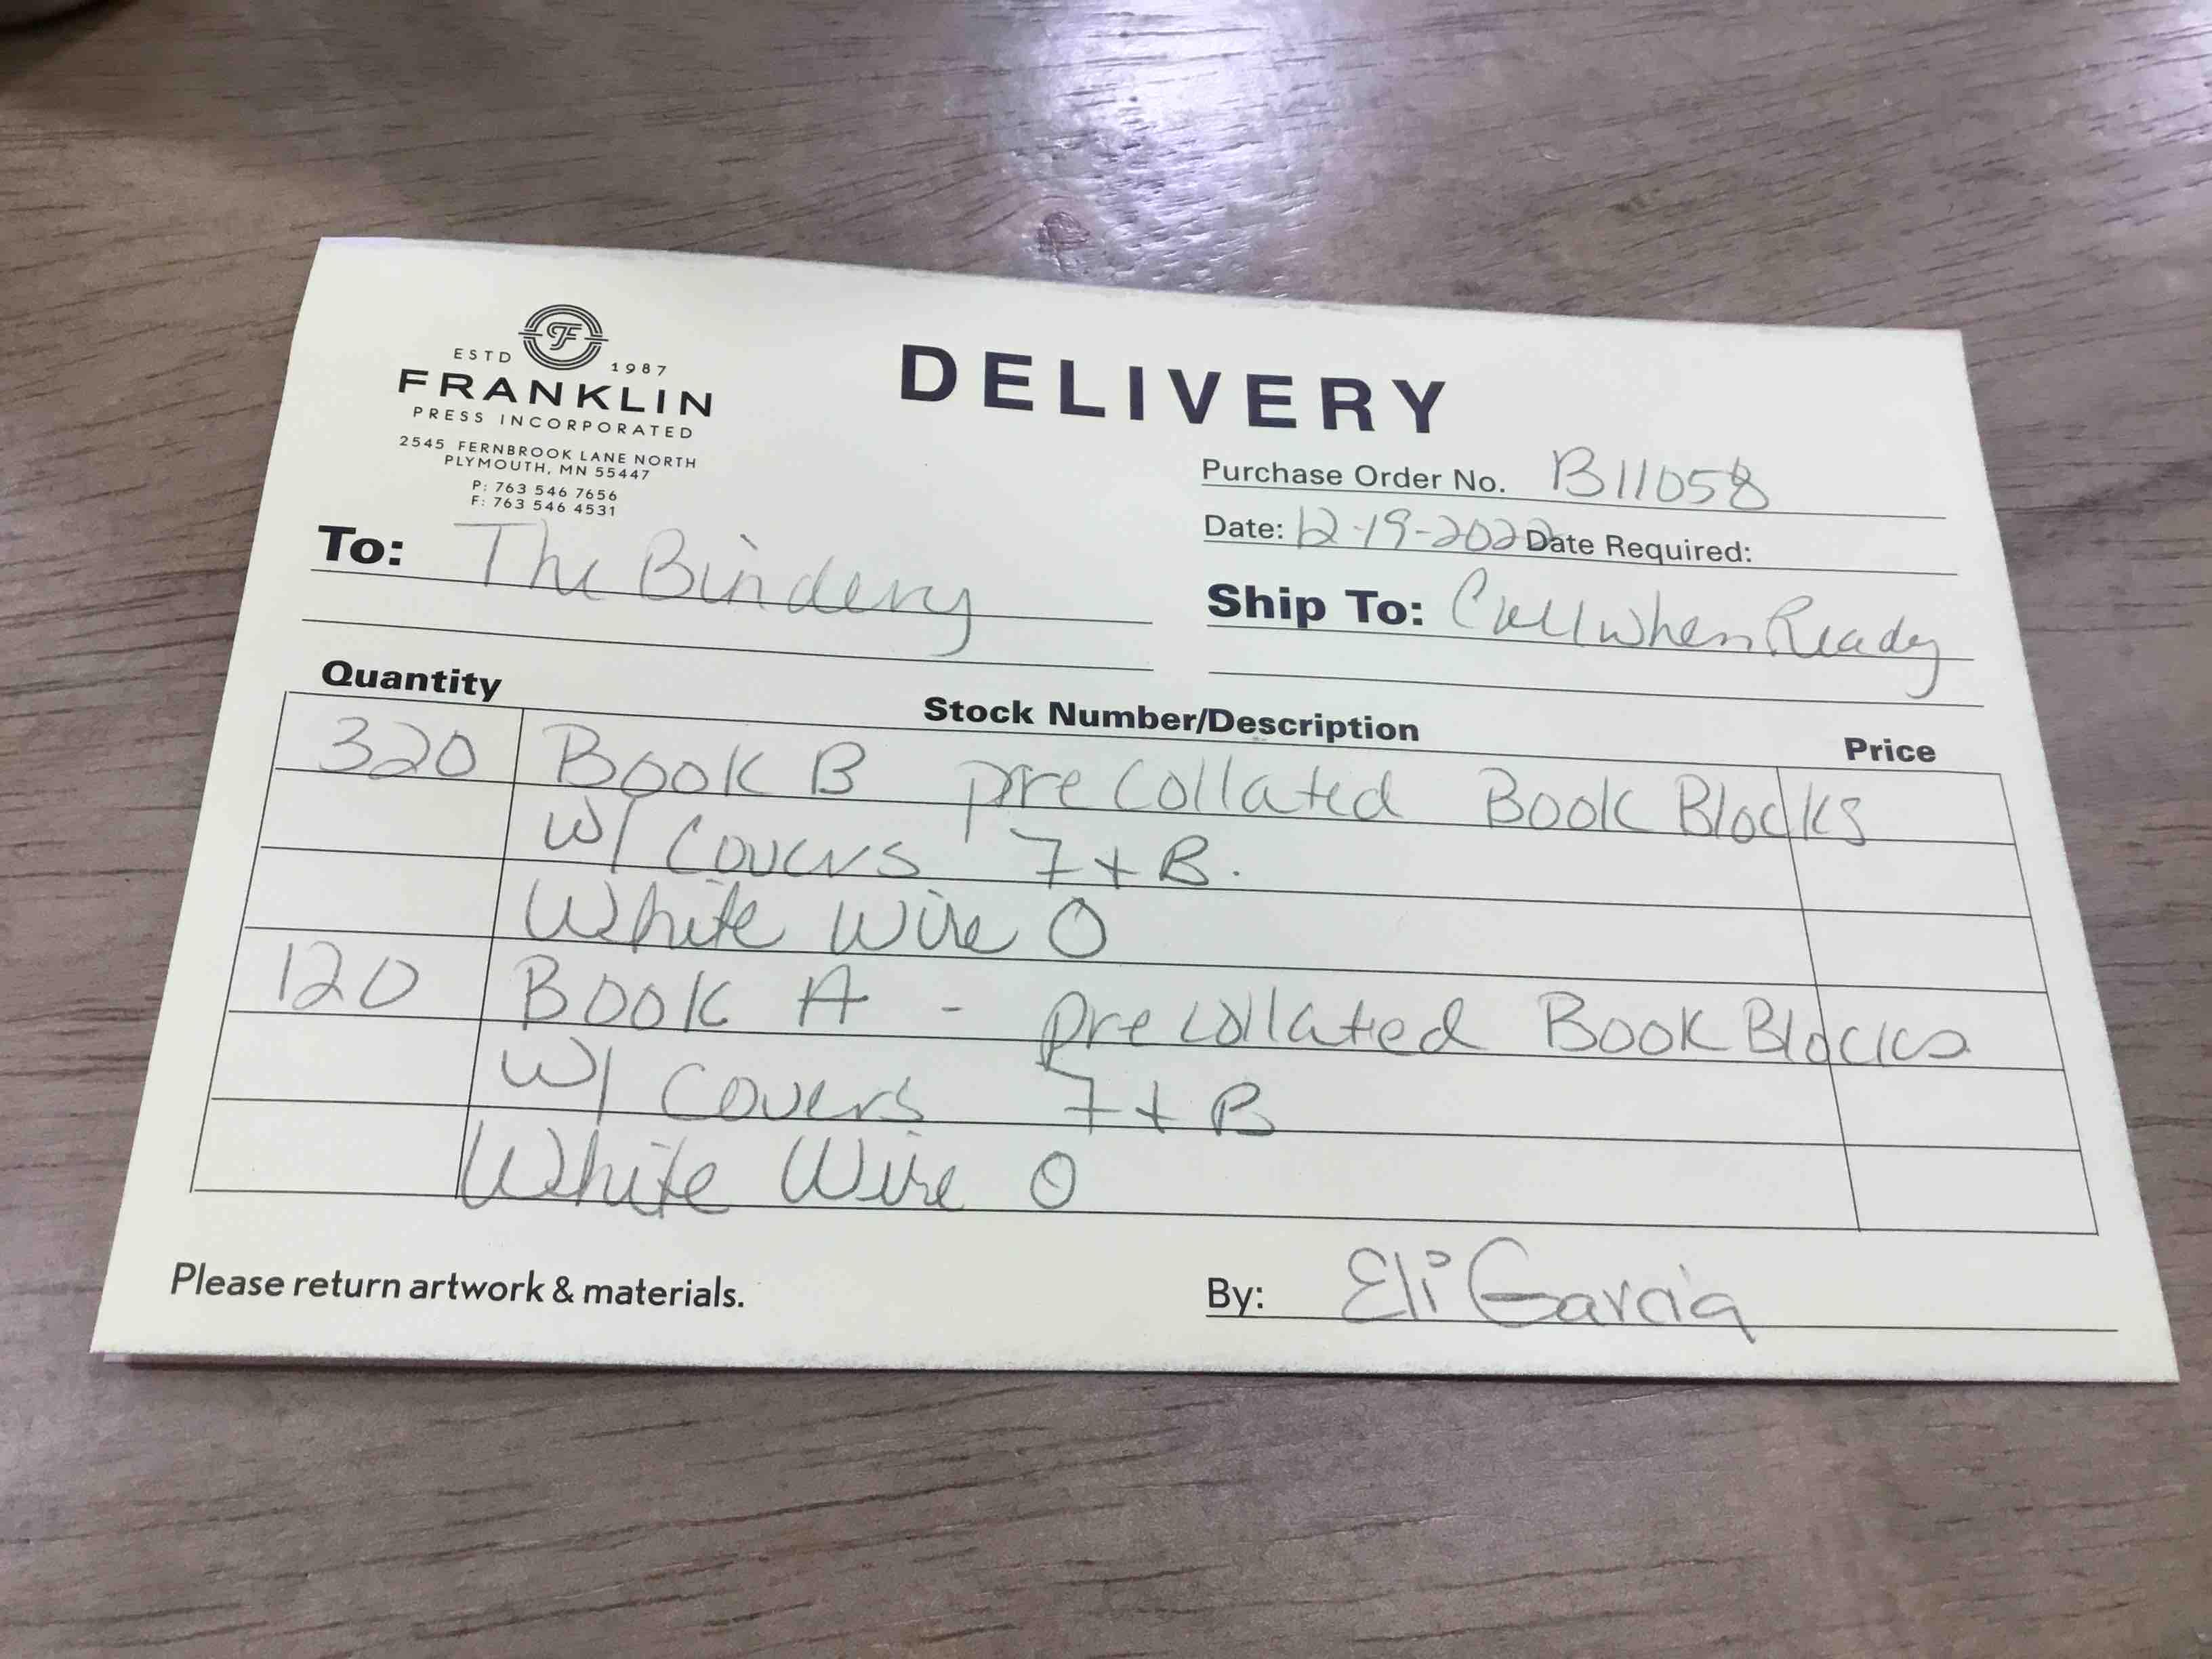 ESTD 1987
FRANKLIN
PRESS INCORPORATED
2545 FERNBROOK LANE NORTH
PLYMOUTH, MN 55447
P: 763 546 7656
F: 763 546 4531
DELIVERY
Purchase Order No. B11058
Date: 12-19-2022 Date Required:
To: The Bindery
Ship To: Call when Ready
Quantity Stock Number/Description Price
320 Book B precollated Book Blocks
w/ Covers 7+B.
White Wire O
120 Book A - precollated Book Blocks
w/ Covers 7+B
White Wire O
Please return artwork & materials.
By: Eli Garcia